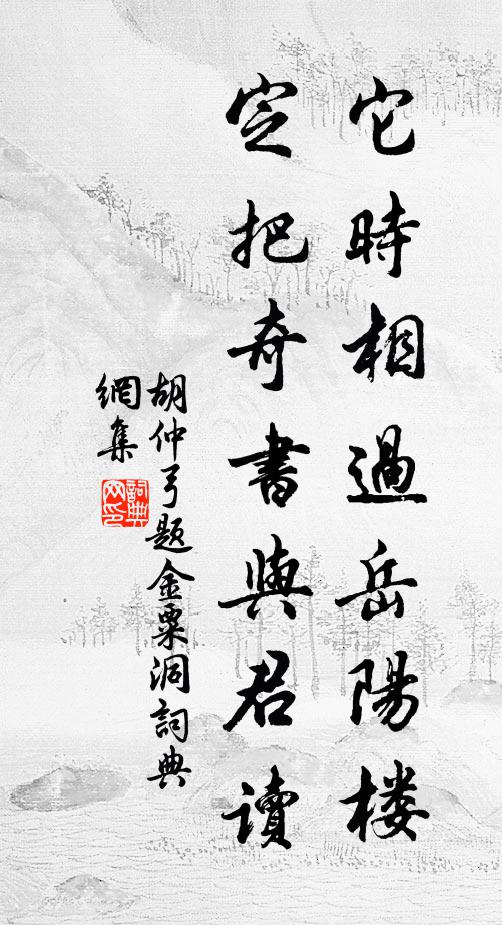 它時相過岳陽楼
定把奇書與君讀
胡仲弓题金粟洞詞典
網集
詞典
网印